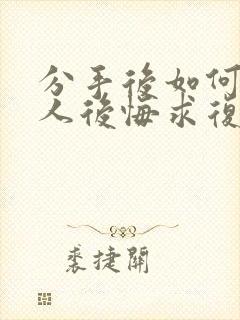 分手後如何
人後悔求復
裘捷開